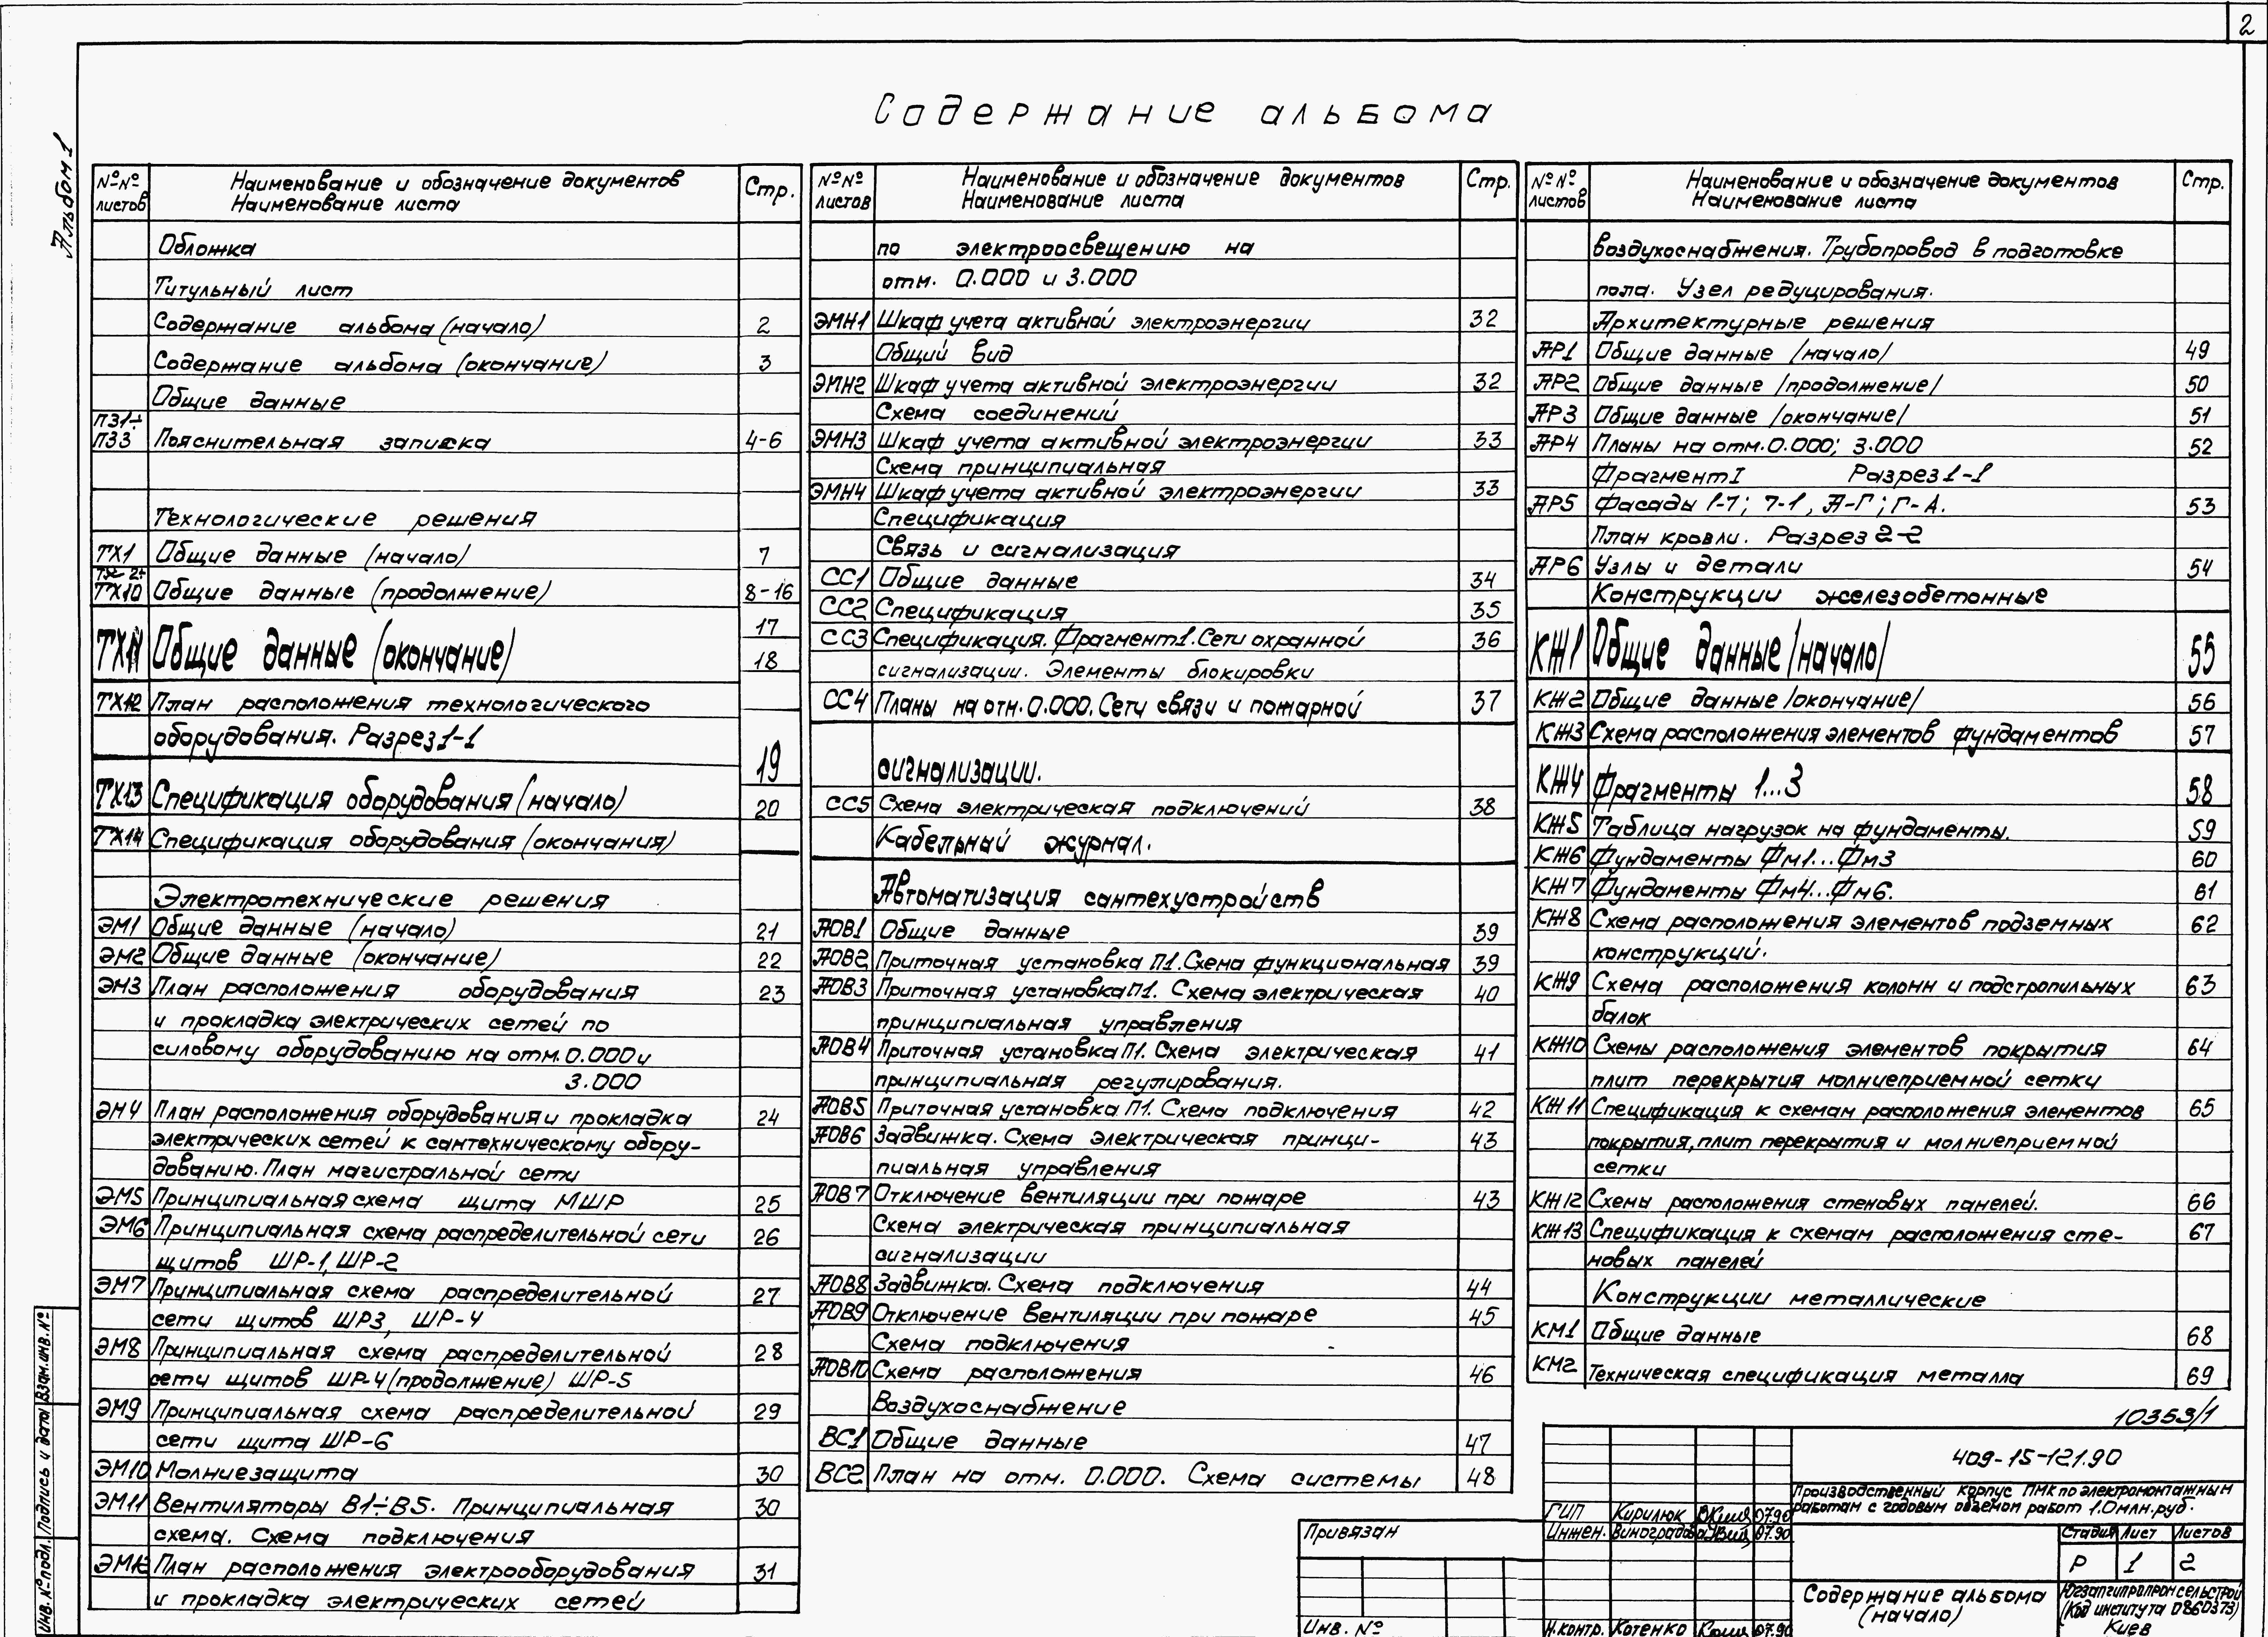 2
Содержание альбома
Альбом 1
№№ листов Наименование и обозначение документов Наименование листа Стр.
Обложка
Титульный лист
Содержание альбома (начало) 2
Содержание альбома (окончание) 3
Общие данные
ПЗ1÷
ПЗ3 Пояснительная записка 4-6
Технологические решения
ТХ1 Общие данные (начало) 7
ТХ 2÷
ТХ10 Общие данные (продолжение) 8-16
17
ТХ11 Общие данные (окончание) 18
ТХ12 План расположения технологического
оборудования. Разрез 1-1
19
ТХ13 Спецификация оборудования (начало) 20
ТХ14 Спецификация оборудования (окончания)
Электротехнические решения
ЭМ1 Общие данные (начало) 21
ЭМ2 Общие данные (окончание) 22
ЭМ3 План расположения оборудования 23
и прокладка электрических сетей по
силовому оборудованию на отм. 0.000 и
3.000
ЭМ4 План расположения оборудования и прокладка 24
электрических сетей к сантехническому обору-
дованию. План магистральной сети
ЭМ5 Принципиальная схема щита МШР 25
ЭМ6 Принципиальная схема распределительной сети 26
щитов ШР-1, ШР-2
ЭМ7 Принципиальная схема распределительной 27
сети щитов ШР3, ШР-4
ЭМ8 Принципиальная схема распределительной 28
сети щитов ШР-4 (продолжение) ШР-5
ЭМ9 Принципиальная схема распределительной 29
сети щита ШР-6
ЭМ10 Молниезащита 30
ЭМ11 Вентиляторы В1÷В5. Принципиальная 30
схема. Схема подключения
ЭМ12 План расположения электрооборудования 31
и прокладка электрических сетей
№№ листов Наименование и обозначение документов Наименование листа Стр.
по электроосвещению на
отм. 0.000 и 3.000
ЭМН1 Шкаф учета активной электроэнергии 32
Общий вид
ЭМН2 Шкаф учета активной электроэнергии 32
Схема соединений
ЭМН3 Шкаф учета активной электроэнергии 33
Схема принципиальная
ЭМН4 Шкаф учета активной электроэнергии 33
Спецификация
Связь и сигнализация
СС1 Общие данные 34
СС2 Спецификация 35
СС3 Спецификация. Фрагмент 1. Сети охранной 36
сигнализации. Элементы блокировки
СС4 Планы на отм. 0.000. Сети связи и пожарной 37
сигнализации.
СС5 Схема электрическая подключений 38
Кабельный журнал.
Автоматизация сантехустройств
АОВ1 Общие данные 39
АОВ2 Приточная установка П1. Схема функциональная 39
АОВ3 Приточная установка П1. Схема электрическая 40
принципиальная управления
АОВ4 Приточная установка П1. Схема электрическая 41
принципиальная регулирования.
АОВ5 Приточная установка П1. Схема подключения 42
АОВ6 Задвижка. Схема электрическая принци- 43
пиальная управления
АОВ7 Отключение вентиляции при пожаре 43
Схема электрическая принципиальная
сигнализации
АОВ8 Задвижка. Схема подключения 44
АОВ9 Отключение вентиляции при пожаре 45
Схема подключения
АОВ10 Схема расположения 46
Воздухоснабжение
ВС1 Общие данные 47
ВС2 План на отм. 0.000. Схема системы 48
№№ листов Наименование и обозначение документов Наименование листа Стр.
воздухоснабжения. Трубопровод в подготовке
пола. Узел редуцирования.
Архитектурные решения
АР1 Общие данные /начало/ 49
АР2 Общие данные /продолжение/ 50
АР3 Общие данные /окончание/ 51
АР4 Планы на отм. 0.000; 3.000 52
Фрагмент I Разрез 1-1
АР5 Фасады 1-7; 7-1, А-Г; Г-А. 53
План кровли. Разрез 2-2
АР6 Узлы и детали 54
Конструкции железобетонные
КЖ1 Общие данные /начало/ 55
КЖ2 Общие данные /окончание/ 56
КЖ3 Схема расположения элементов фундаментов 57
КЖ4 Фрагменты 1...3 58
КЖ5 Таблица нагрузок на фундаменты. 59
КЖ6 Фундаменты Фм1...Фм3 60
КЖ7 Фундаменты Фм4...Фм6. 61
КЖ8 Схема расположения элементов подземных 62
конструкций.
КЖ9 Схема расположения колонн и подстропильных 63
балок
КЖ10 Схемы расположения элементов покрытия 64
плит перекрытия молниеприемной сетки
КЖ11 Спецификация к схемам расположения элементов 65
покрытия, плит перекрытия и молниеприемной
сетки
КЖ12 Схемы расположения стеновых панелей. 66
КЖ13 Спецификация к схемам расположения сте- 67
новых панелей
Конструкции металлические
КМ1 Общие данные 68
КМ2 Техническая спецификация металла 69
10353/1
409-15-121.90
Производственный корпус ПМК по электромонтажным
работам с годовым объемом работ 1.0 млн.руб.
ГИП Кирилюк 07.90
Инжен. Виноградова 07.90
Н.контр. Котенко 07.90
Стадия Лист Листов
Р 1 2
Содержание альбома
(начало)
Югзапгипропромсельстрой
(Код института 0860373)
Киев
Привязан
Инв. №
Инв. № подл. Подпись и дата Взам.инв.№